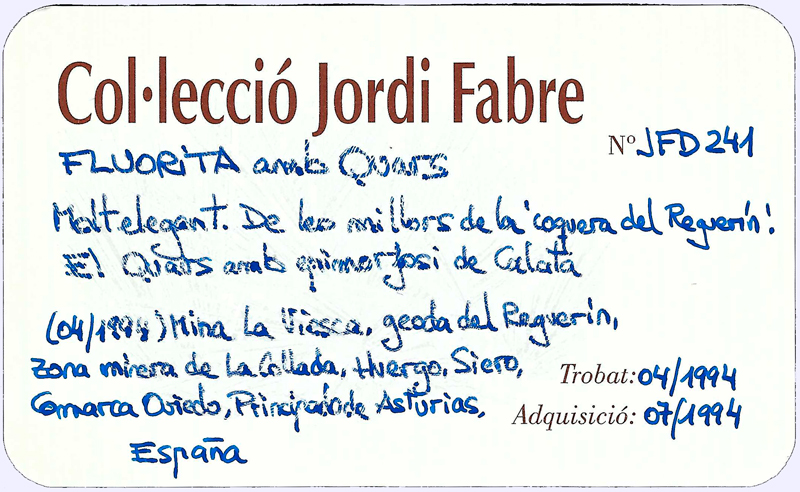 Col·lecció Jordi Fabre
Nº JFD241
FLUORITA amb Quars
Molt elegant. De les millors de la 'coquera del Reguerín'.
El Quars amb epimorfosi de Calcita
(04/1994) Mina La Viesca, geoda del Reguerín,
zona minera de La Collada, Huergo, Siero,
Comarca Oviedo, Principado de Asturias,
España
Trobat: 04/1994
Adquisició: 07/1994